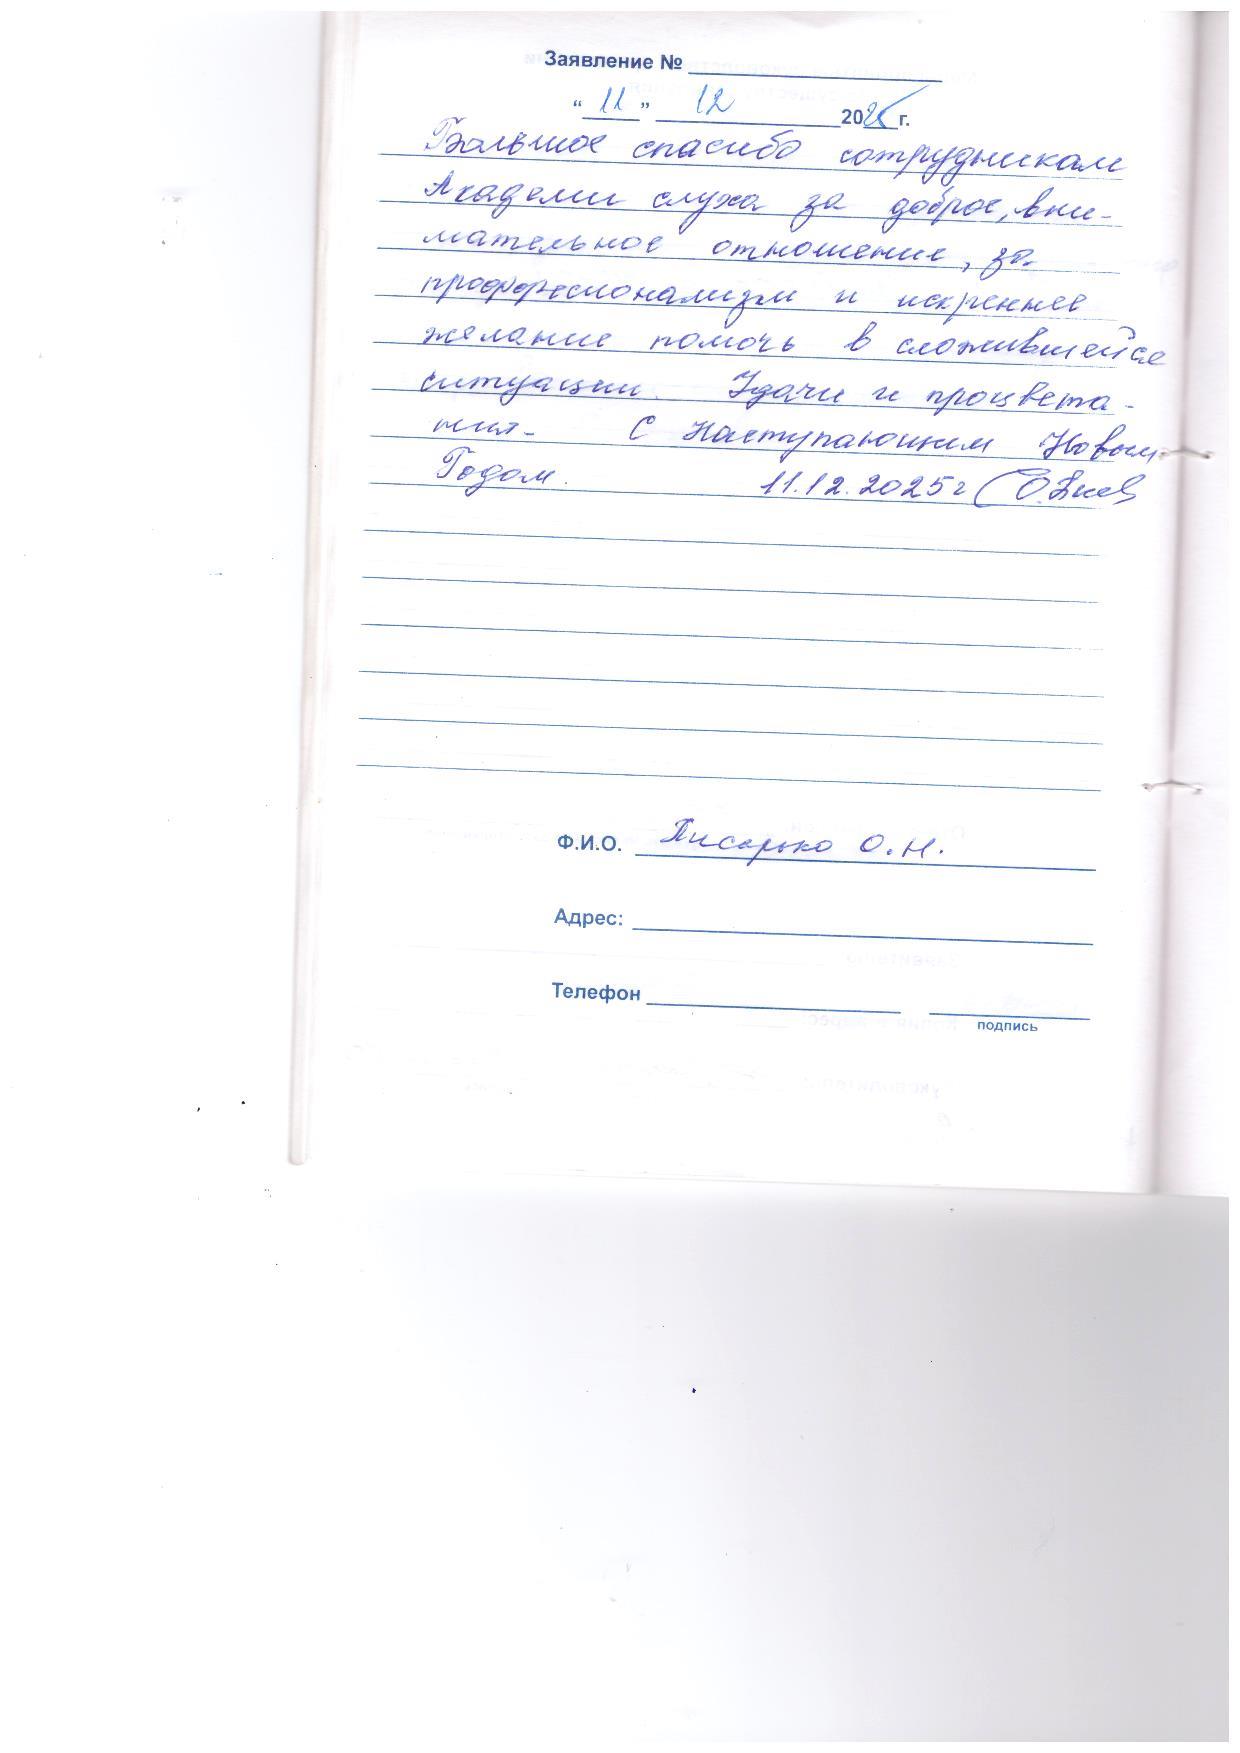 Заявление №
“ 11 ” 12 2025 г.
Большое спасибо сотрудникам
Академии слуха за доброе, вни-
мательное отношение, за
профессионализм и искреннее
желание помочь в сложившейся
ситуации. Удачи и процвета-
ния. С Наступающим Новым
Годом. 11.12.2025г
Ф.И.О. Писарько О.Н.
Адрес:
Телефон
подпись